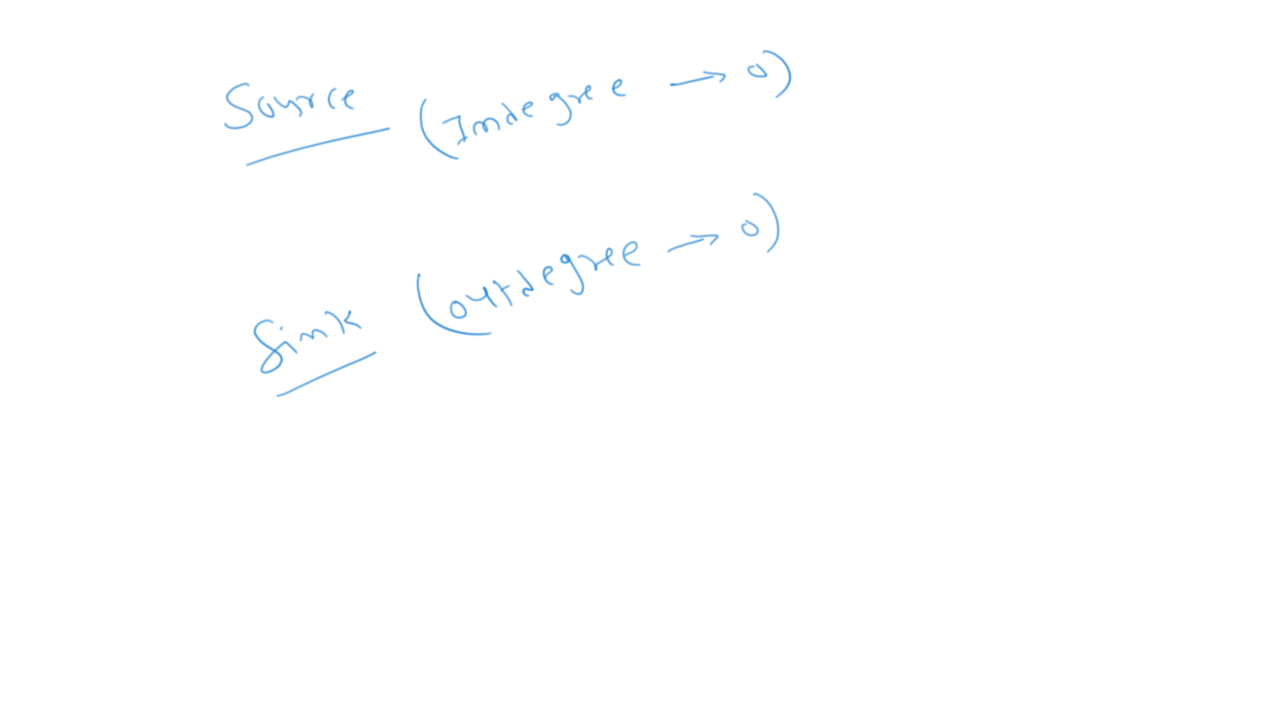 Source (Indegree → 0)
Sink (outdegree → 0)